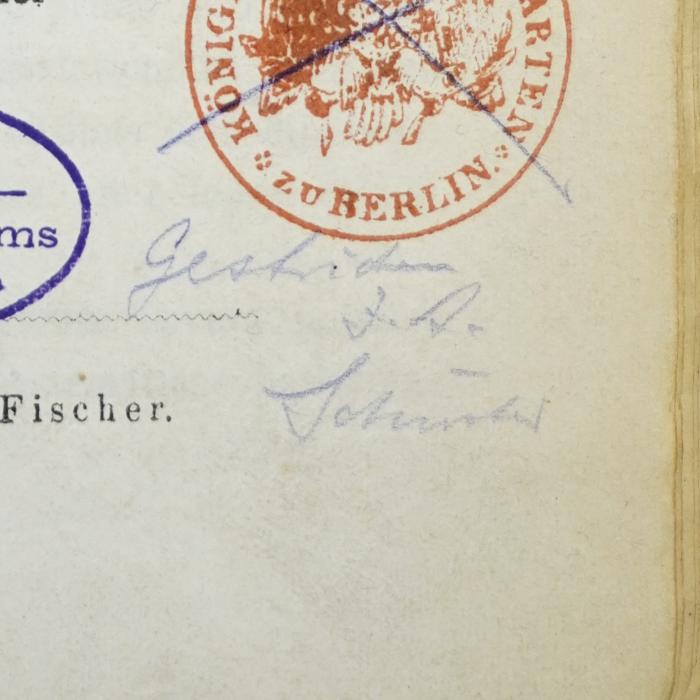 KÖNIG
ARTEN
ZU BERLIN.
ms
Gestrichen
Fischer.